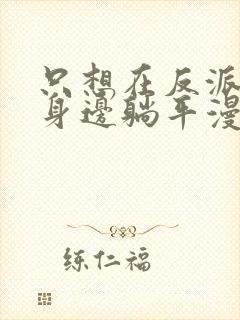 只想在反派
身邊躺平漫
练仁福